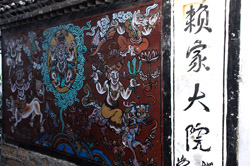 赖家大院